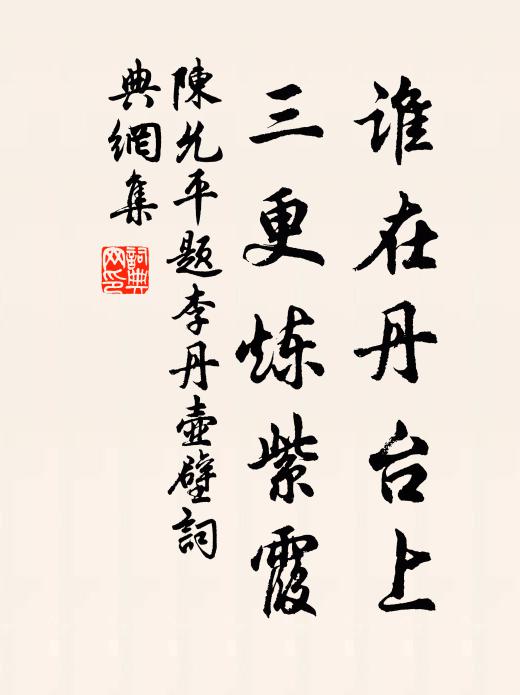 谁在丹台上
三更炼紫霞
陳允平题李丹壶壁詞
典網集
詞典网印